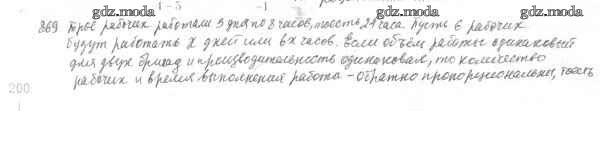 gdz.moda gdz.moda gdz.moda
1-5 -1
869 Трое рабочих работали 3 дня по 8 часов, то есть 24 часа. Пусть 6 рабочих
будут работать x дней или 8x часов. Если объём работы одинаковый
для двух бригад и производительность одинаковая, то количество
рабочих и время выполнения работы – обратно пропорциональны, то есть
200
gdz.moda gdz.moda gdz.moda